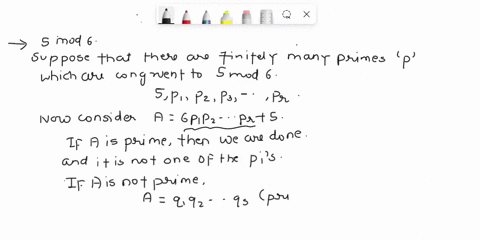 → 5 mod 6.
Suppose that there are finitely many primes 'p'
which are congruent to 5 mod 6.
5, p1, p2, p3, -··, pr.
Now consider A = 6p1p2 -·· pr + 5.
If A is prime, then we are done.
and it is not one of the pi's.
If A is not prime,
A = q1q2 -·· qs (pri